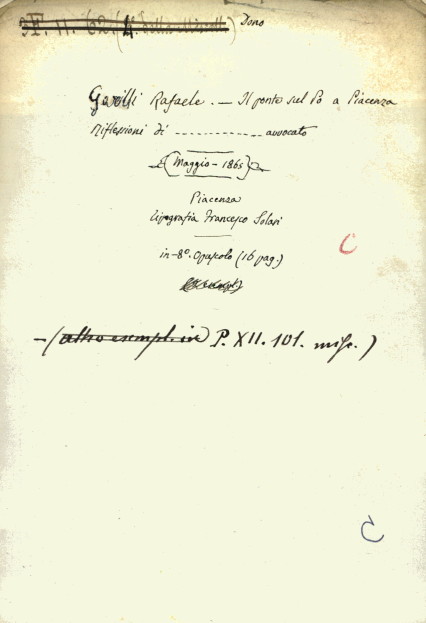 Dono
Rafaele. — Il ponte sul Pò a Piacenza
Riflessioni di ............... avvocato
(Maggio - 1865)
Piacenza
Tipografia Francesco Solari
in-8º. Opuscolo (16 pag.)
C
- (altro esempl. in P. XII. 101. misc.)
C